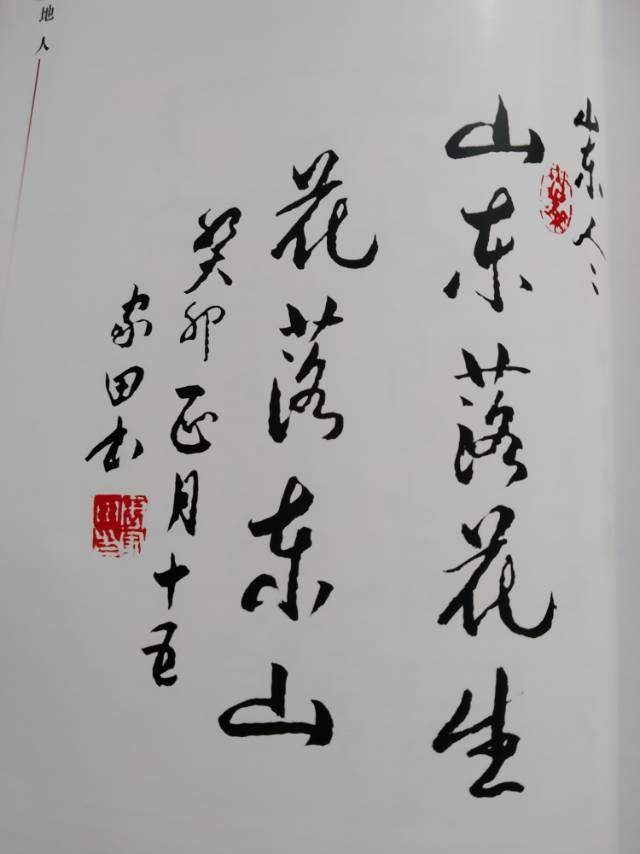 山东人〻
山东落花生
花落东山
癸卯正月十五
家田书
地人